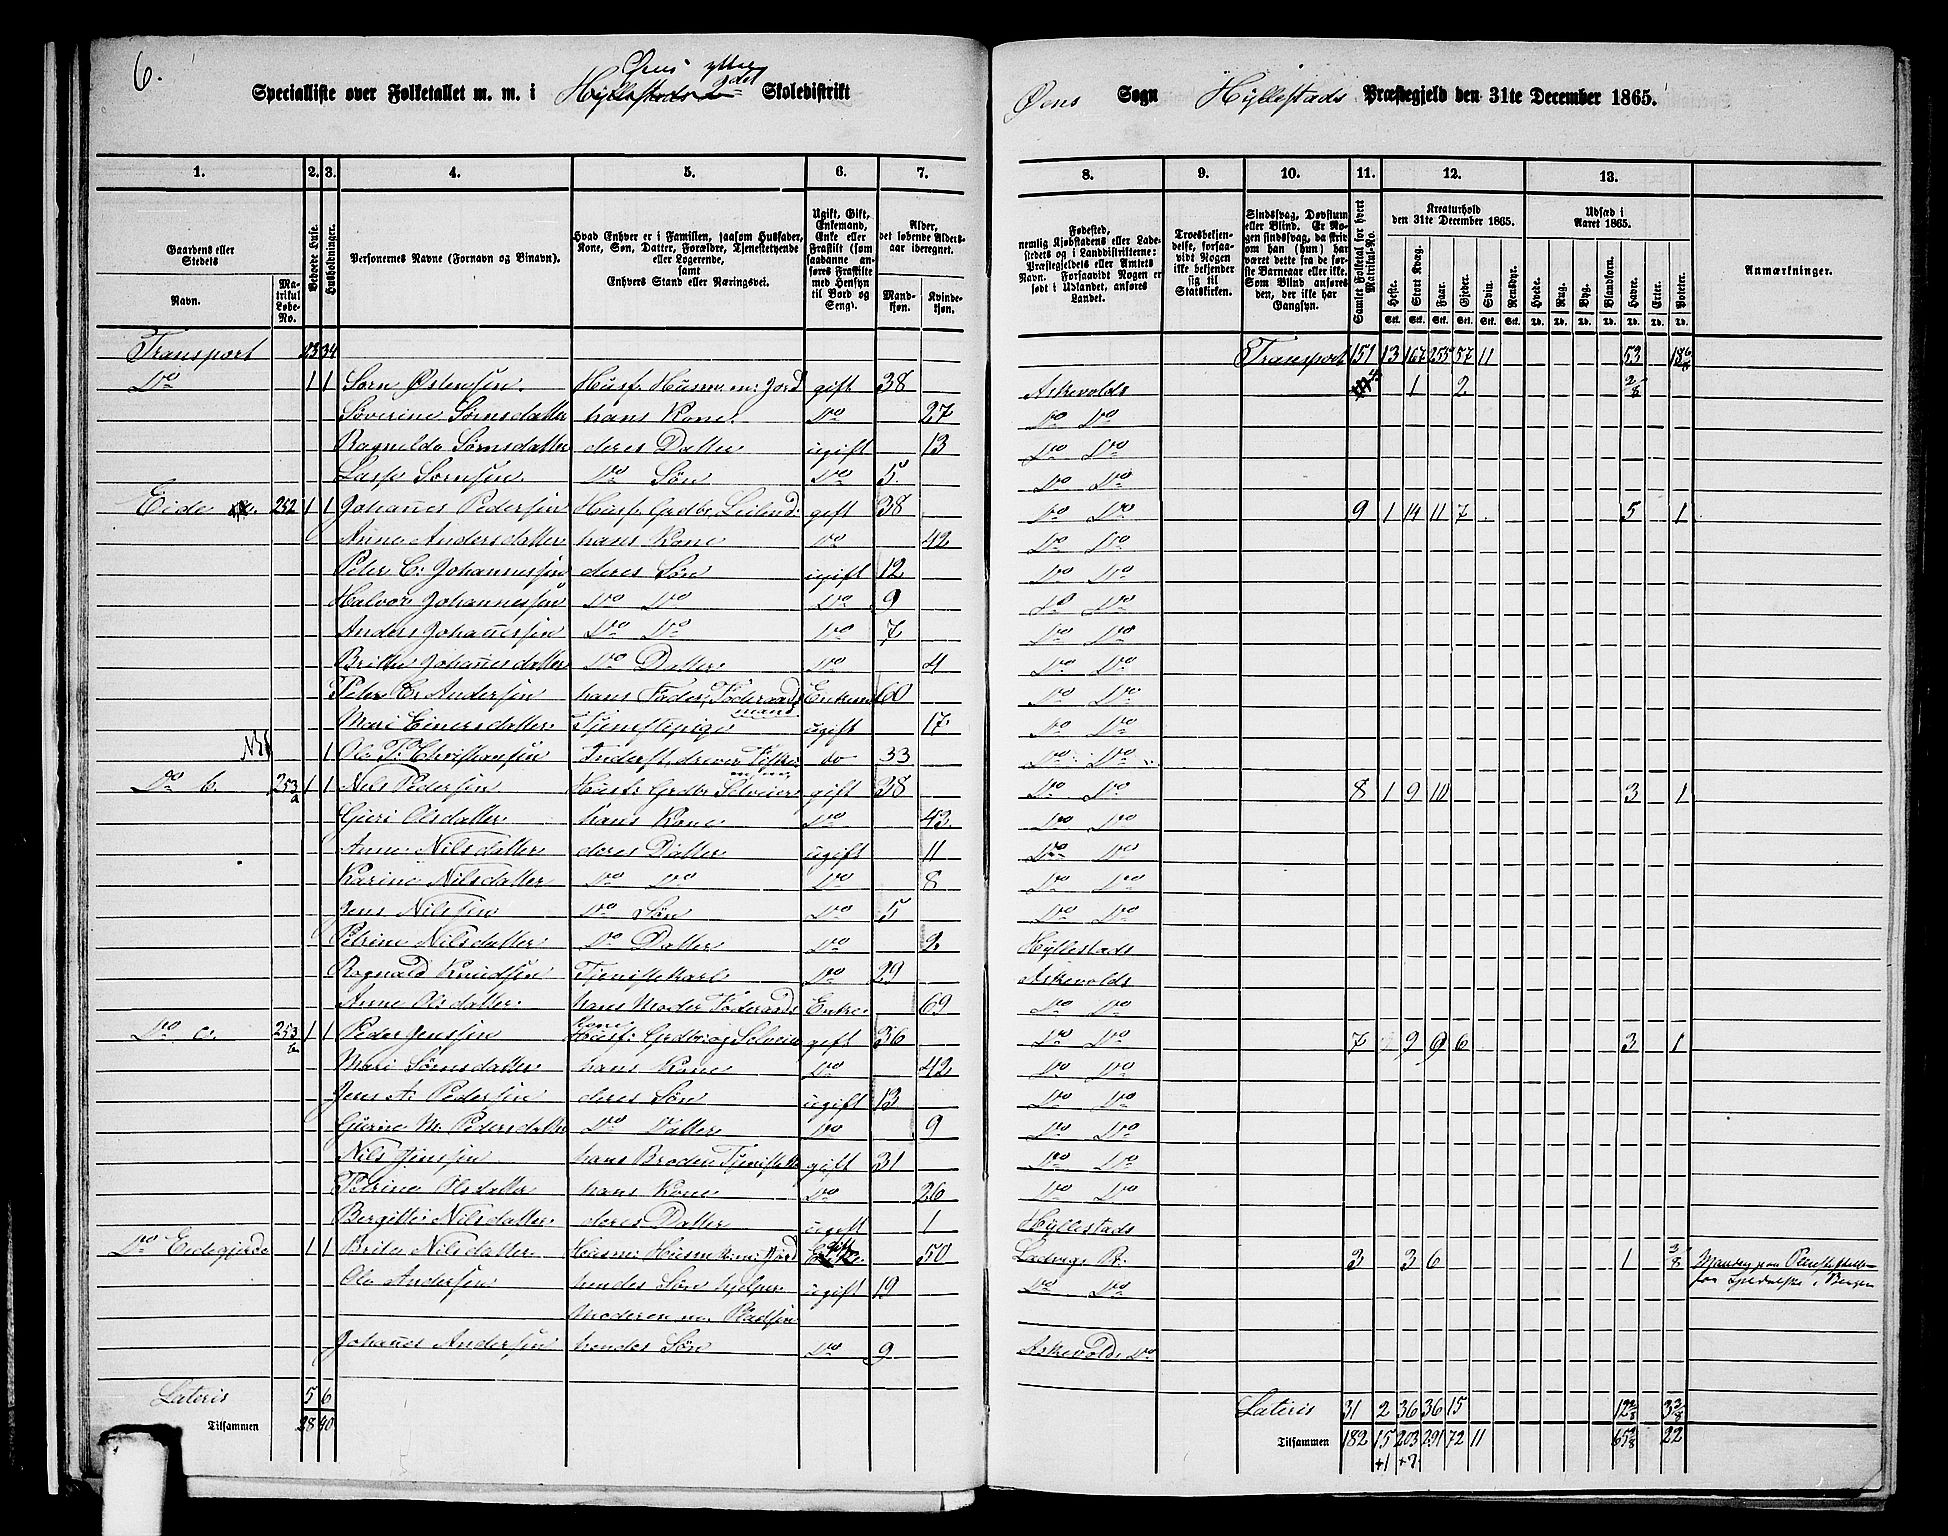 6.
Specialliste over Folketallet m. m. i Øens ytter Hyllestads 2det Skoledistrikt
Øens Sogn Hyllestads Præstegjeld den 31te December 1865.
1. 2. 3. 4. 5. 6. 7. 8. 9. 10. 11. 12. 13.
Gaardens eller Stedets
Navn. Matrikul Løbe-No.
Beboede Huse.
Husholdninger.
Personernes Navne (Fornavn og Binavn).
Hvad Enhver er i Familien, saasom Husfader, Kone, Søn, Datter, Forældre, Tjenestetyende eller Logerende, samt Enhvers Stand eller Næringsvei.
Ugift, Gift, Enkemand, Enke eller Fraskilt (saasom saadanne anføres Fraskilte med Hensyn til Bord og Seng).
Alder, det løbende Aldersaar iberegnet.
Mandkjøn. Kvindekjøn.
Fødested, nemlig Kjøbstadens eller Ladestedets og i Landdistrifterne: Præstegjeldets eller Amtets Navn. Forsaavidt Nogen er født i Udlandet, anføres Landet.
Troesbekjendelse, forsaavidt Nogen ikke bekjender sig til Statskirken.
Sindssvag, Døvstum eller Blind. Er Nogen sindssvag, da skriv om han (hun) har været dette fra de første Barneaar eller ikke. Som Blind anføres den, der ikke har Gangsyn.
Samlet Folketal for hvert Matrikul-No.
Kreaturhold den 31te December 1865.
Heste. Stort Kvæg. Faar. Gjeder. Svin. Rensdyr.
Udsæd i Aaret 1865.
Hvede. Rug. Byg. Blandkorn. Havre. Erter. Poteter.
Anmærkninger.
Transport 23 34 Transport 151 13 167 255 57 11 53 18 6/8
Do 1 1 Sørn Østensen Husf. Husm. m: Jord gift 38 Askevolds 4 1 2 2/8
Søverine Sørnsdatter hans Kone Do 27 Do Do
Ragnilde Sørnsdatter deres Datter ugift 13 Do Do
Lasse Sørnsen Do Søn Do 5 Do Do
Eide a. 252 1 1 Johanes Pedersen Husf. Grdbr. Leilend: gift 38 Do Do 9 1 14 11 7 5 1
Anne Andersdatter hans Kone Do 42 Do Do
Peter C. Johannessen deres Søn ugift 12 Do Do
Halvor Johannessen Do Do Do 9 Do Do
Anders Johanessen Do Do Do 7 Do Do
Britte Johanesdatter Do Datter Do 4 Do Do
Peter E. Andersen hans Fader, Føderaadsmand Enkem 60 Do Do
Mari Einersdatter Tjenestepige ugift 17 Do Do
1 Ole T: Christiansen Inderst, driver Fiskeri do 33 Do Do
Do b. 253 a 1 1 Nils Pedersen Husf. Grdbr. Selveier gift 38 Do Do 8 1 9 10 3 1
Guri Olsdatter hans Kone Do 43 Do Do
Anne Nilsdatter deres Datter ugift 11 Do Do
Karine Nilsdatter Do Do Do 8 Do Do
Jens Nilssen Do Søn Do 5 Do Do
Petrine Nilsdatter Do Datter Do 2 Hyllestads
Rognald Knudsen Tjenistekarl Do 29 Askevolds
Anne Olsdatter hans Moder Føderaads Enke 69 Do Do
Do c. 253 b 1 1 Peder Jenssen Husf: Grdbr: og Selveier gift 36 Do Do 7 9 6 6 3 1
Mari Sørnsdatter hans Kone Do 42 Do Do
Jens A. Pedersen deres Søn ugift 13 Do Do
Gurine M. Pedersdatter Do Datter Do 9 Do Do
Nils Jenssen hans Broder Tjenistek gift 31 Do Do
Petrine Olsdatter hans Kone Do 26 Do Do
Bergitte Nilsdatter deres Datter ugift 1 Hyllestads
Do Eidegjerde 1 1 Brite Nilsdatter Husm: Husm Kone m: Jord gift 50 Ladvigs P: 3 3 6 1 3/8
Ole Andersen hendes Søn hjelper ugift 19 Do Do
Moderen m. Pladsen
Johanes Andersen hendes Søn Do 9 Askevolds Do
Lateris 5 6 Lateris 31 2 36 36 15 12 2/8 3 3/8
Tilsammen 28 40 Tilsammen 182 15 203 291 72 11 65 2/8 22
+1 +2